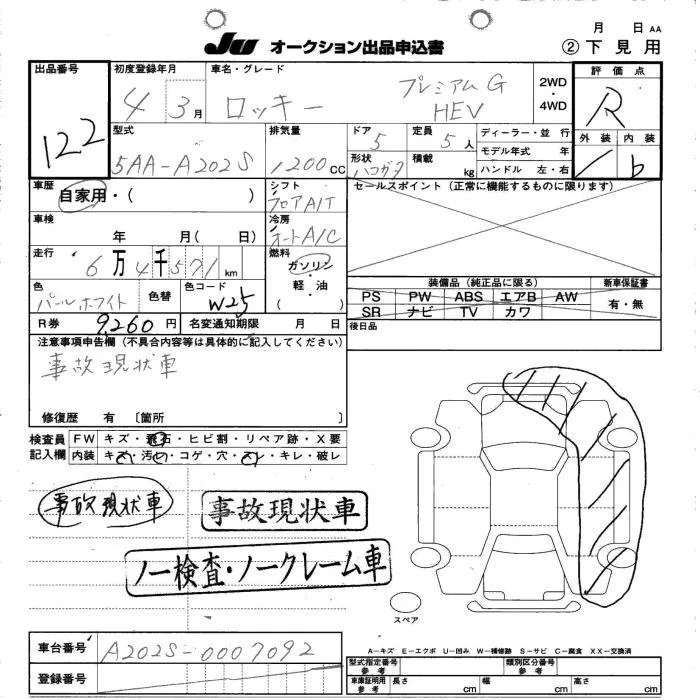 月 日 AA
JU オークション出品申込書 ②下見用
出品番号 初度登録年月 車名・グレード 評価点
122 4 3月 ロッキー プレミアムG HEV 2WD・4WD R
型式 排気量 ドア 定員 ディーラー・並行 外装 内装
5AA-A202S 1200cc 5 5人 モデル年式 年 / b
形状 積載 ハンドル 左・右
ハコガタ kg
車歴 シフト セールスポイント(正常に機能するものに限ります)
自家用・( ) フロアA/T
車検 冷房
年 月(日) オートA/C
走行 燃料
6万4千571km ガソリン・軽油( )
色 色替 色コード 装備品(純正品に限る) 新車保証書
パールホワイト W25 PS PW ABS エアB AW 有・無
SR ナビ TV カワ
R券 9,260円 名変通知期限 月 日 後日品
注意事項申告欄(不具合内容等は具体的に記入してください)
事故現状車
修復歴 有 〔箇所 〕
検査員 FW キズ・飛石・ヒビ割・リペア跡・X要
記入欄 内装 キズ・汚れ・コゲ・穴・スレ・キレ・破レ
事故現状車 事故現状車
ノー検査・ノークレーム車
スペア
車台番号 A202S-0007092
A-キズ E-エクボ U-凹み W-補修跡 S-サビ C-腐食 XX-交換済
登録番号 型式指定番号 参考 類別区分番号 参考
車庫証明用 参考 長さ cm 幅 cm 高さ cm